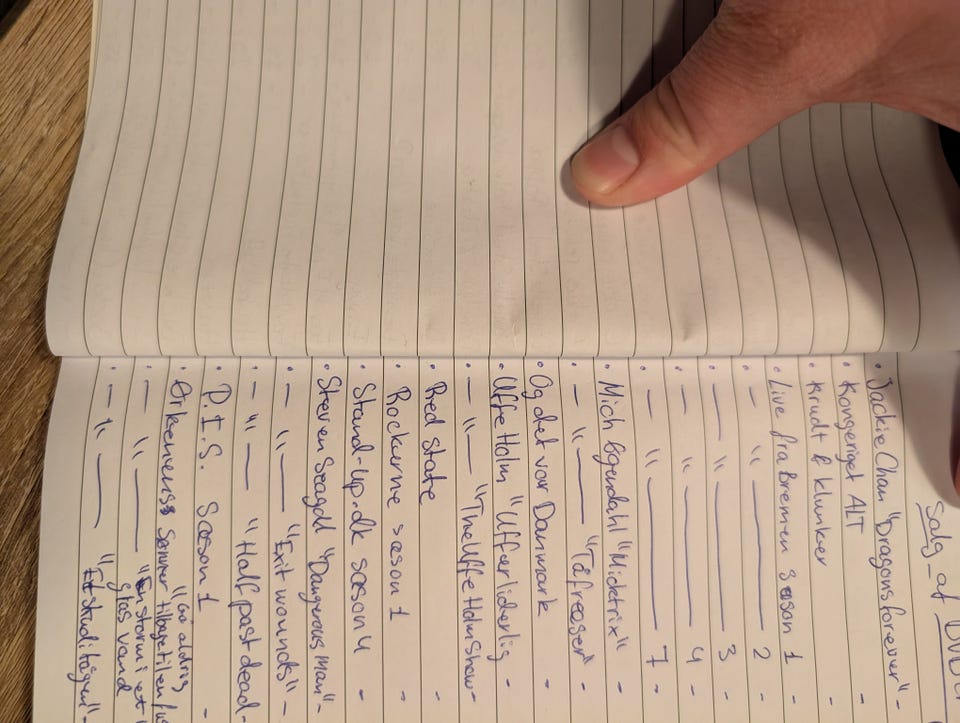 Salg af DVD
• Jackie Chan "Dragons forever" -
• Kongeriget ALT -
• Krudt & klunker -
• Live fra Bremen sæson 1 -
• — " — 2 -
• — " — 3 -
• — " — 4 -
• — " — 7 -
• Mich Øgendahl "Midtrix" -
• — " — "Tåfræser" -
• Og det var Danmark -
• Uffe Holm "Ufferliderlig -
• — " — "The Uffe Holm Show -
• Red State -
• Rockerne sæson 1 -
• Stand-up.dk sæson 4 -
• Steven Seagal "Dangerous Man" -
• — " — "Exit wounds" -
• — " — "Half past dead -
• P.I.S. Sæson 1 -
• Ørkenens Sønner "Gå aldrig tilbage til en
• — " — "En storm i et glas vand"
• — " — "Et skud i tågen" -